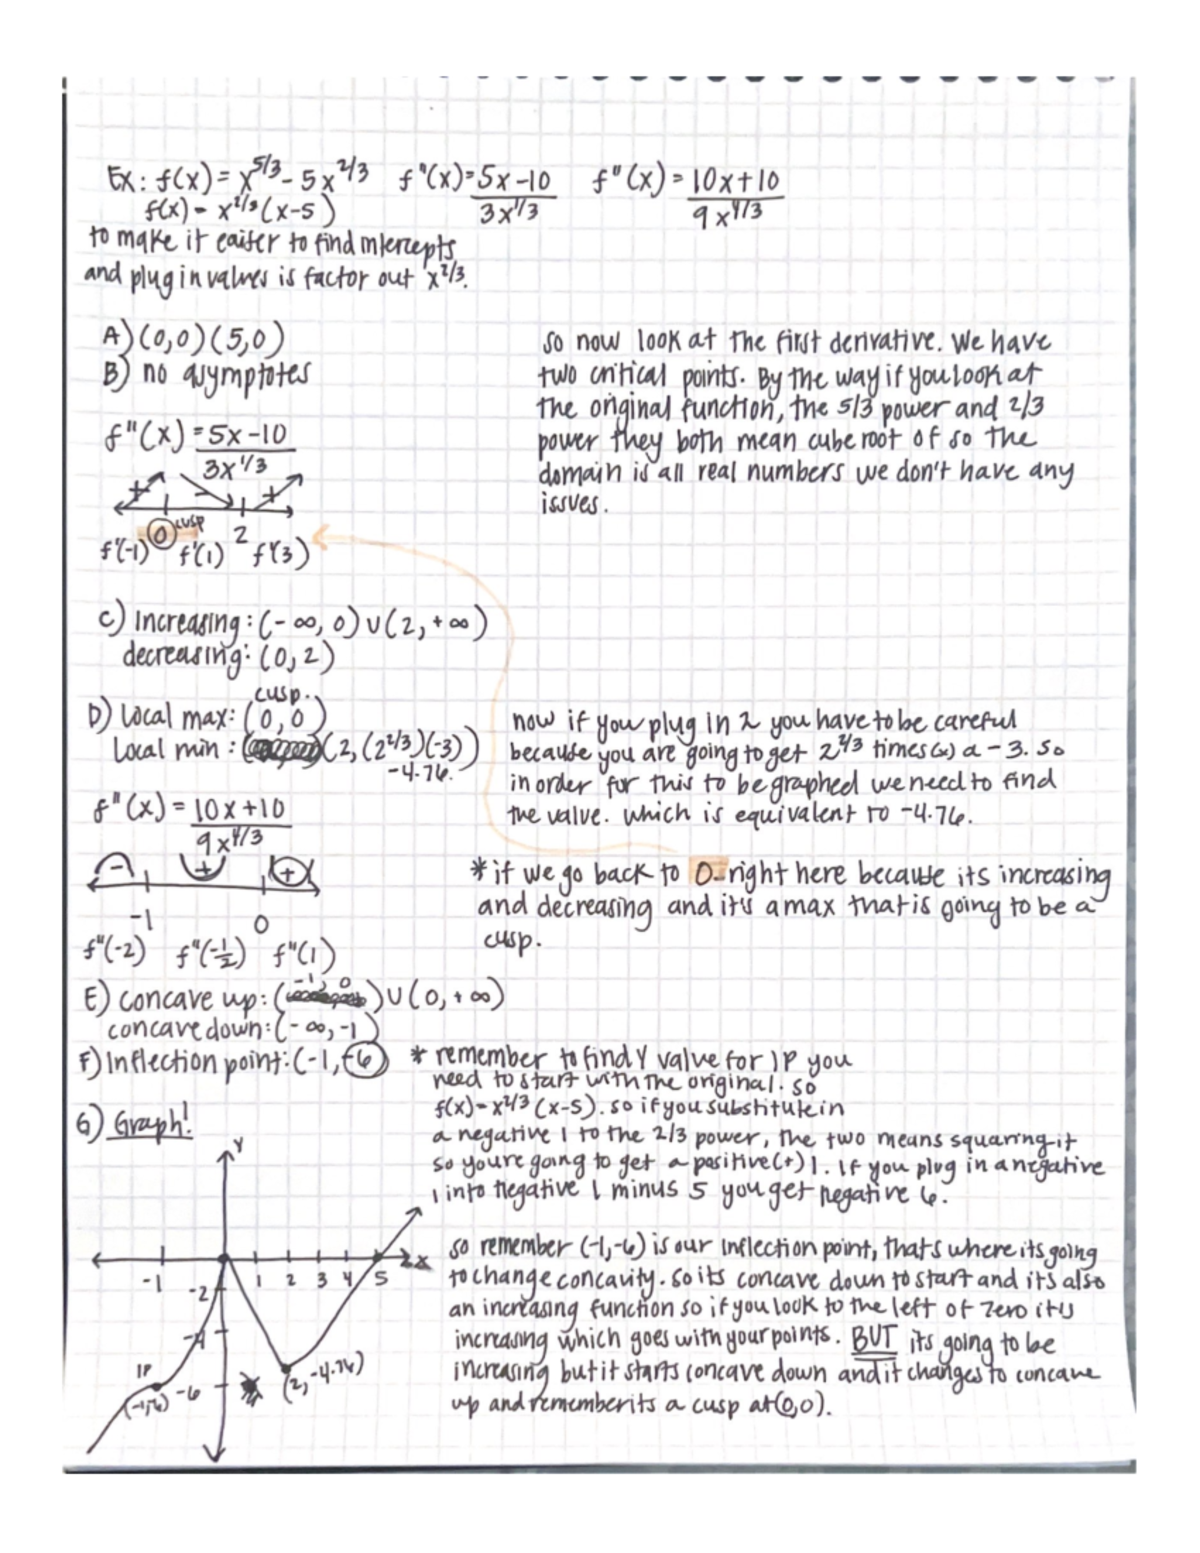 Ex: f(x) = x^5/3 - 5x^2/3 f"(x) = 5x-10 / 3x^1/3 f"(x) = 10x+10 / 9x^4/3
f(x) = x^2/3 (x-5)
to make it eaiser to find intercepts
and plug in values is factor out x^2/3.
A) (0,0) (5,0)
B) no asymptotes
f"(x) = 5x-10 / 3x^1/3
+ - +
0 cusp 2
f'(-1) f'(1) f'(3)
so now look at the first derivative. We have
two critical points. By the way if you look at
the original function, the 5/3 power and 2/3
power they both mean cube root of so the
domain is all real numbers we don't have any
issues.
C) Increasing: (-∞, 0) ∪ (2, +∞)
decreasing: (0, 2)
cusp.
D) Local max: (0, 0)
Local min: (2, (2^2/3)(-3))
-4.76.
now if you plug in 2 you have to be careful
because you are going to get 2^2/3 times(x) a -3. so
in order for this to be graphed we need to find
the value. which is equivalent to -4.76.
f"(x) = 10x+10 / 9x^4/3
- + +
-1 0
f"(-2) f"(-1/2) f"(1)
*if we go back to 0 right here because its increasing
and decreasing and it's a max that is going to be a
cusp.
E) concave up: (-1, 0) ∪ (0, +∞)
concave down: (-∞, -1)
F) Inflection point: (-1, -6)
* remember to find Y value for IP you
need to start with the original. so
f(x) = x^2/3 (x-5). so if you substitute in
a negative 1 to the 2/3 power, the two means squaring it
so youre going to get a positive (+) 1. If you plug in a negative
1 into negative 1 minus 5 you get negative 6.
G) Graph!
Y
x
-1 1 2 3 4 5
-2
-4
-6
IP
(-1,6)
(2, -4.76)
so remember (-1,-6) is our inflection point, that's where its going
to change concavity. so its concave down to start and its also
an increasing function so if you look to the left of zero it's
increasing which goes with your points. BUT its going to be
increasing but it starts concave down and it changes to concave
up and remember its a cusp at (0,0).